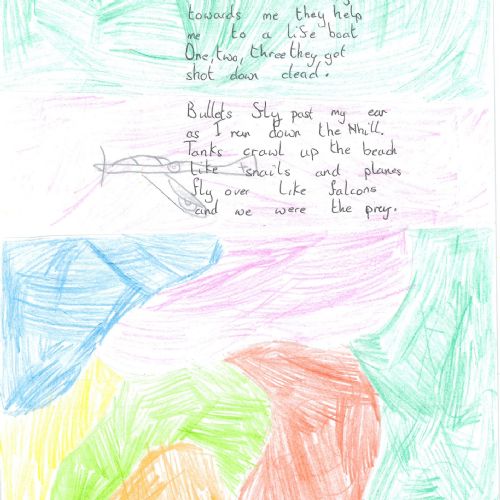 towards me they help
me to a life boat
One, two, three they got
shot down dead.
Bullets fly past my ear
as I ran down the hill.
Tanks crawl up the beach
like snails and planes
fly over like falcons
and we were the prey.